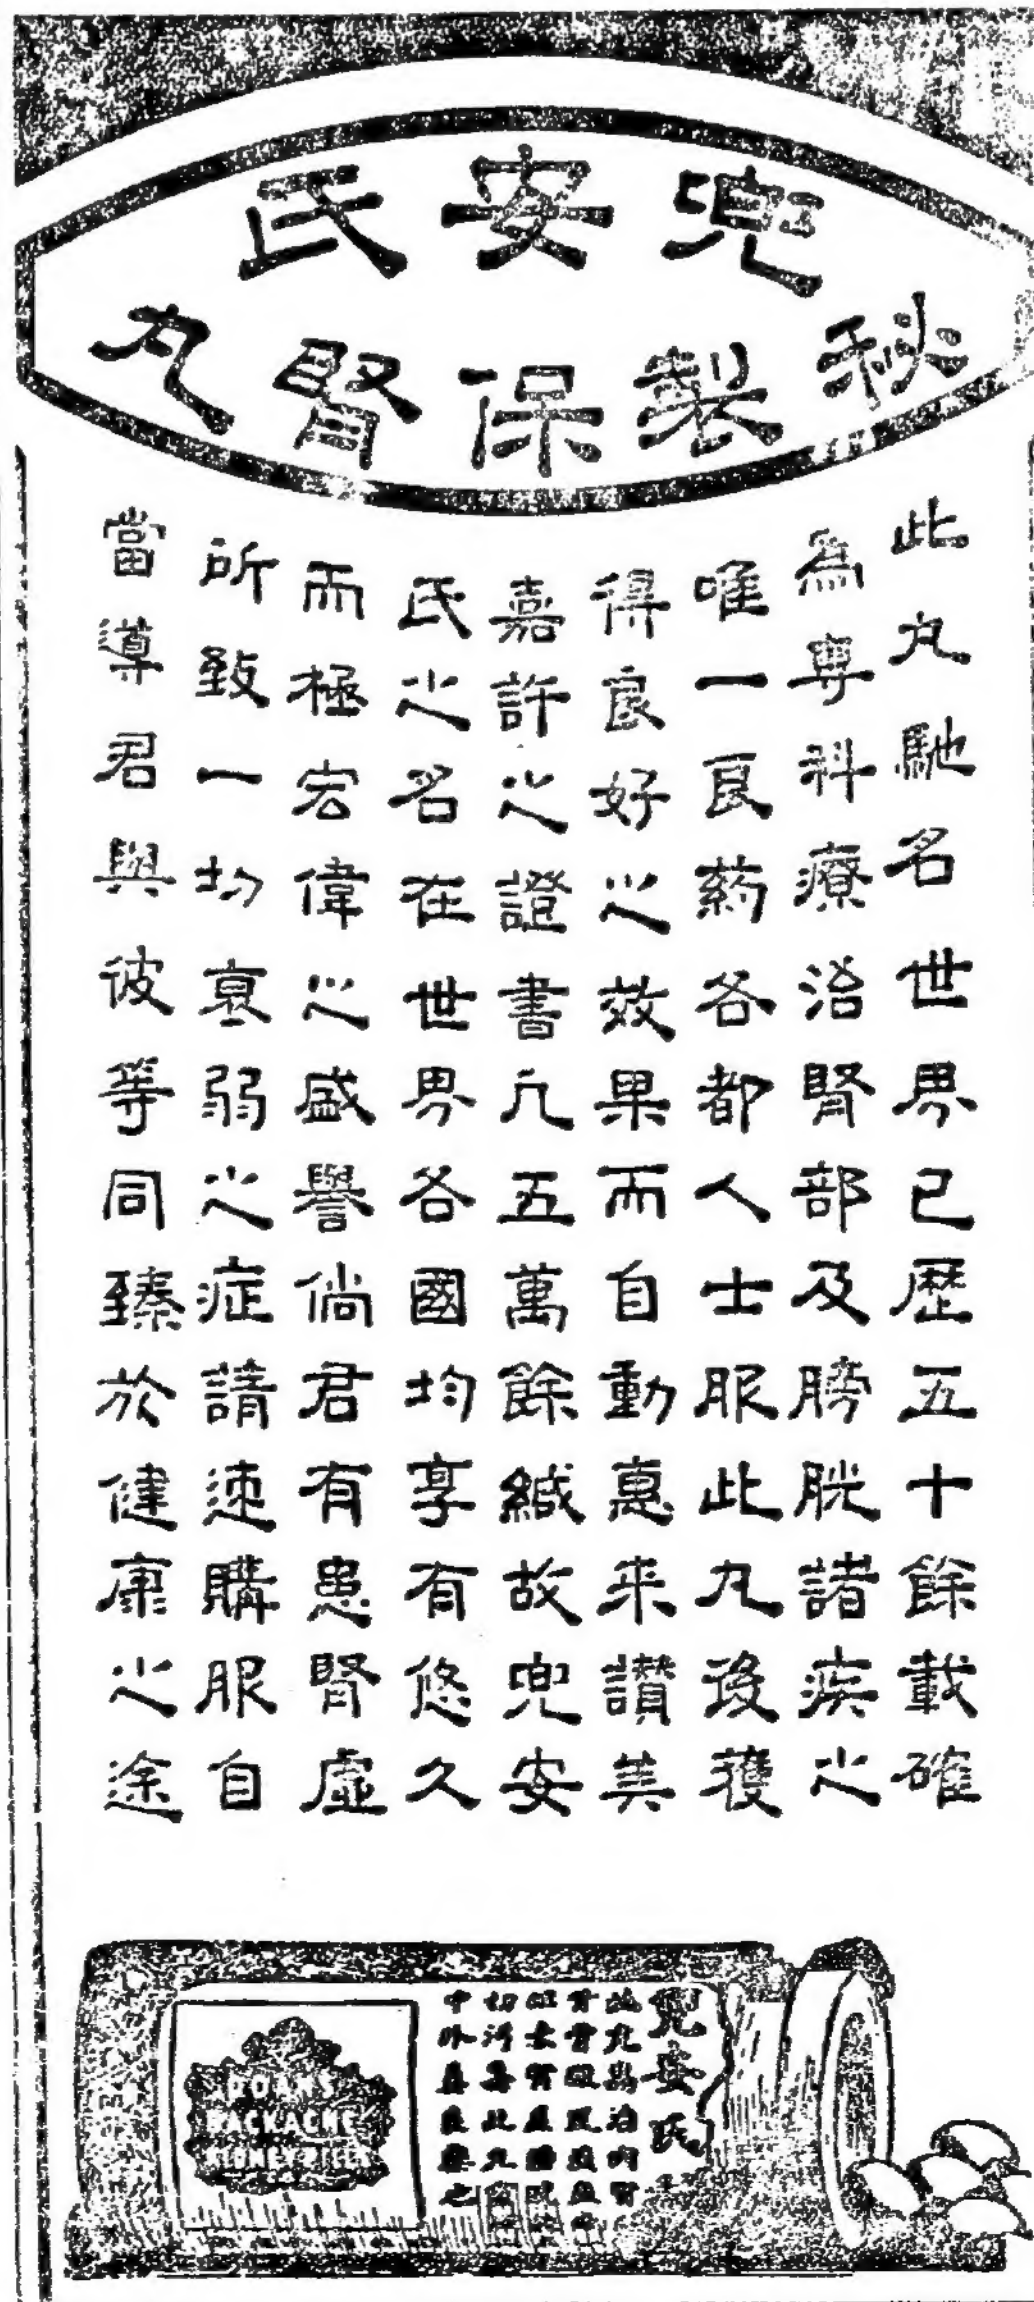 兜安氏
秘製保腎丸
此丸馳名世界已歷五十餘載確
為專科療治腎部及膀胱諸疾之
唯一良藥各都人士服此丸後獲
得良好之效果而自動惠来讚美
嘉許之證書凢五萬餘緘故兜安
氏之名在世界各國均享有悠久
而極宏偉之盛譽倘君有患腎虛
所致一切衰弱之症請速購服自
當導君與彼等同臻於健康之途
兜安氏
DOAN'S
BACKACHE
KIDNEY PILLS